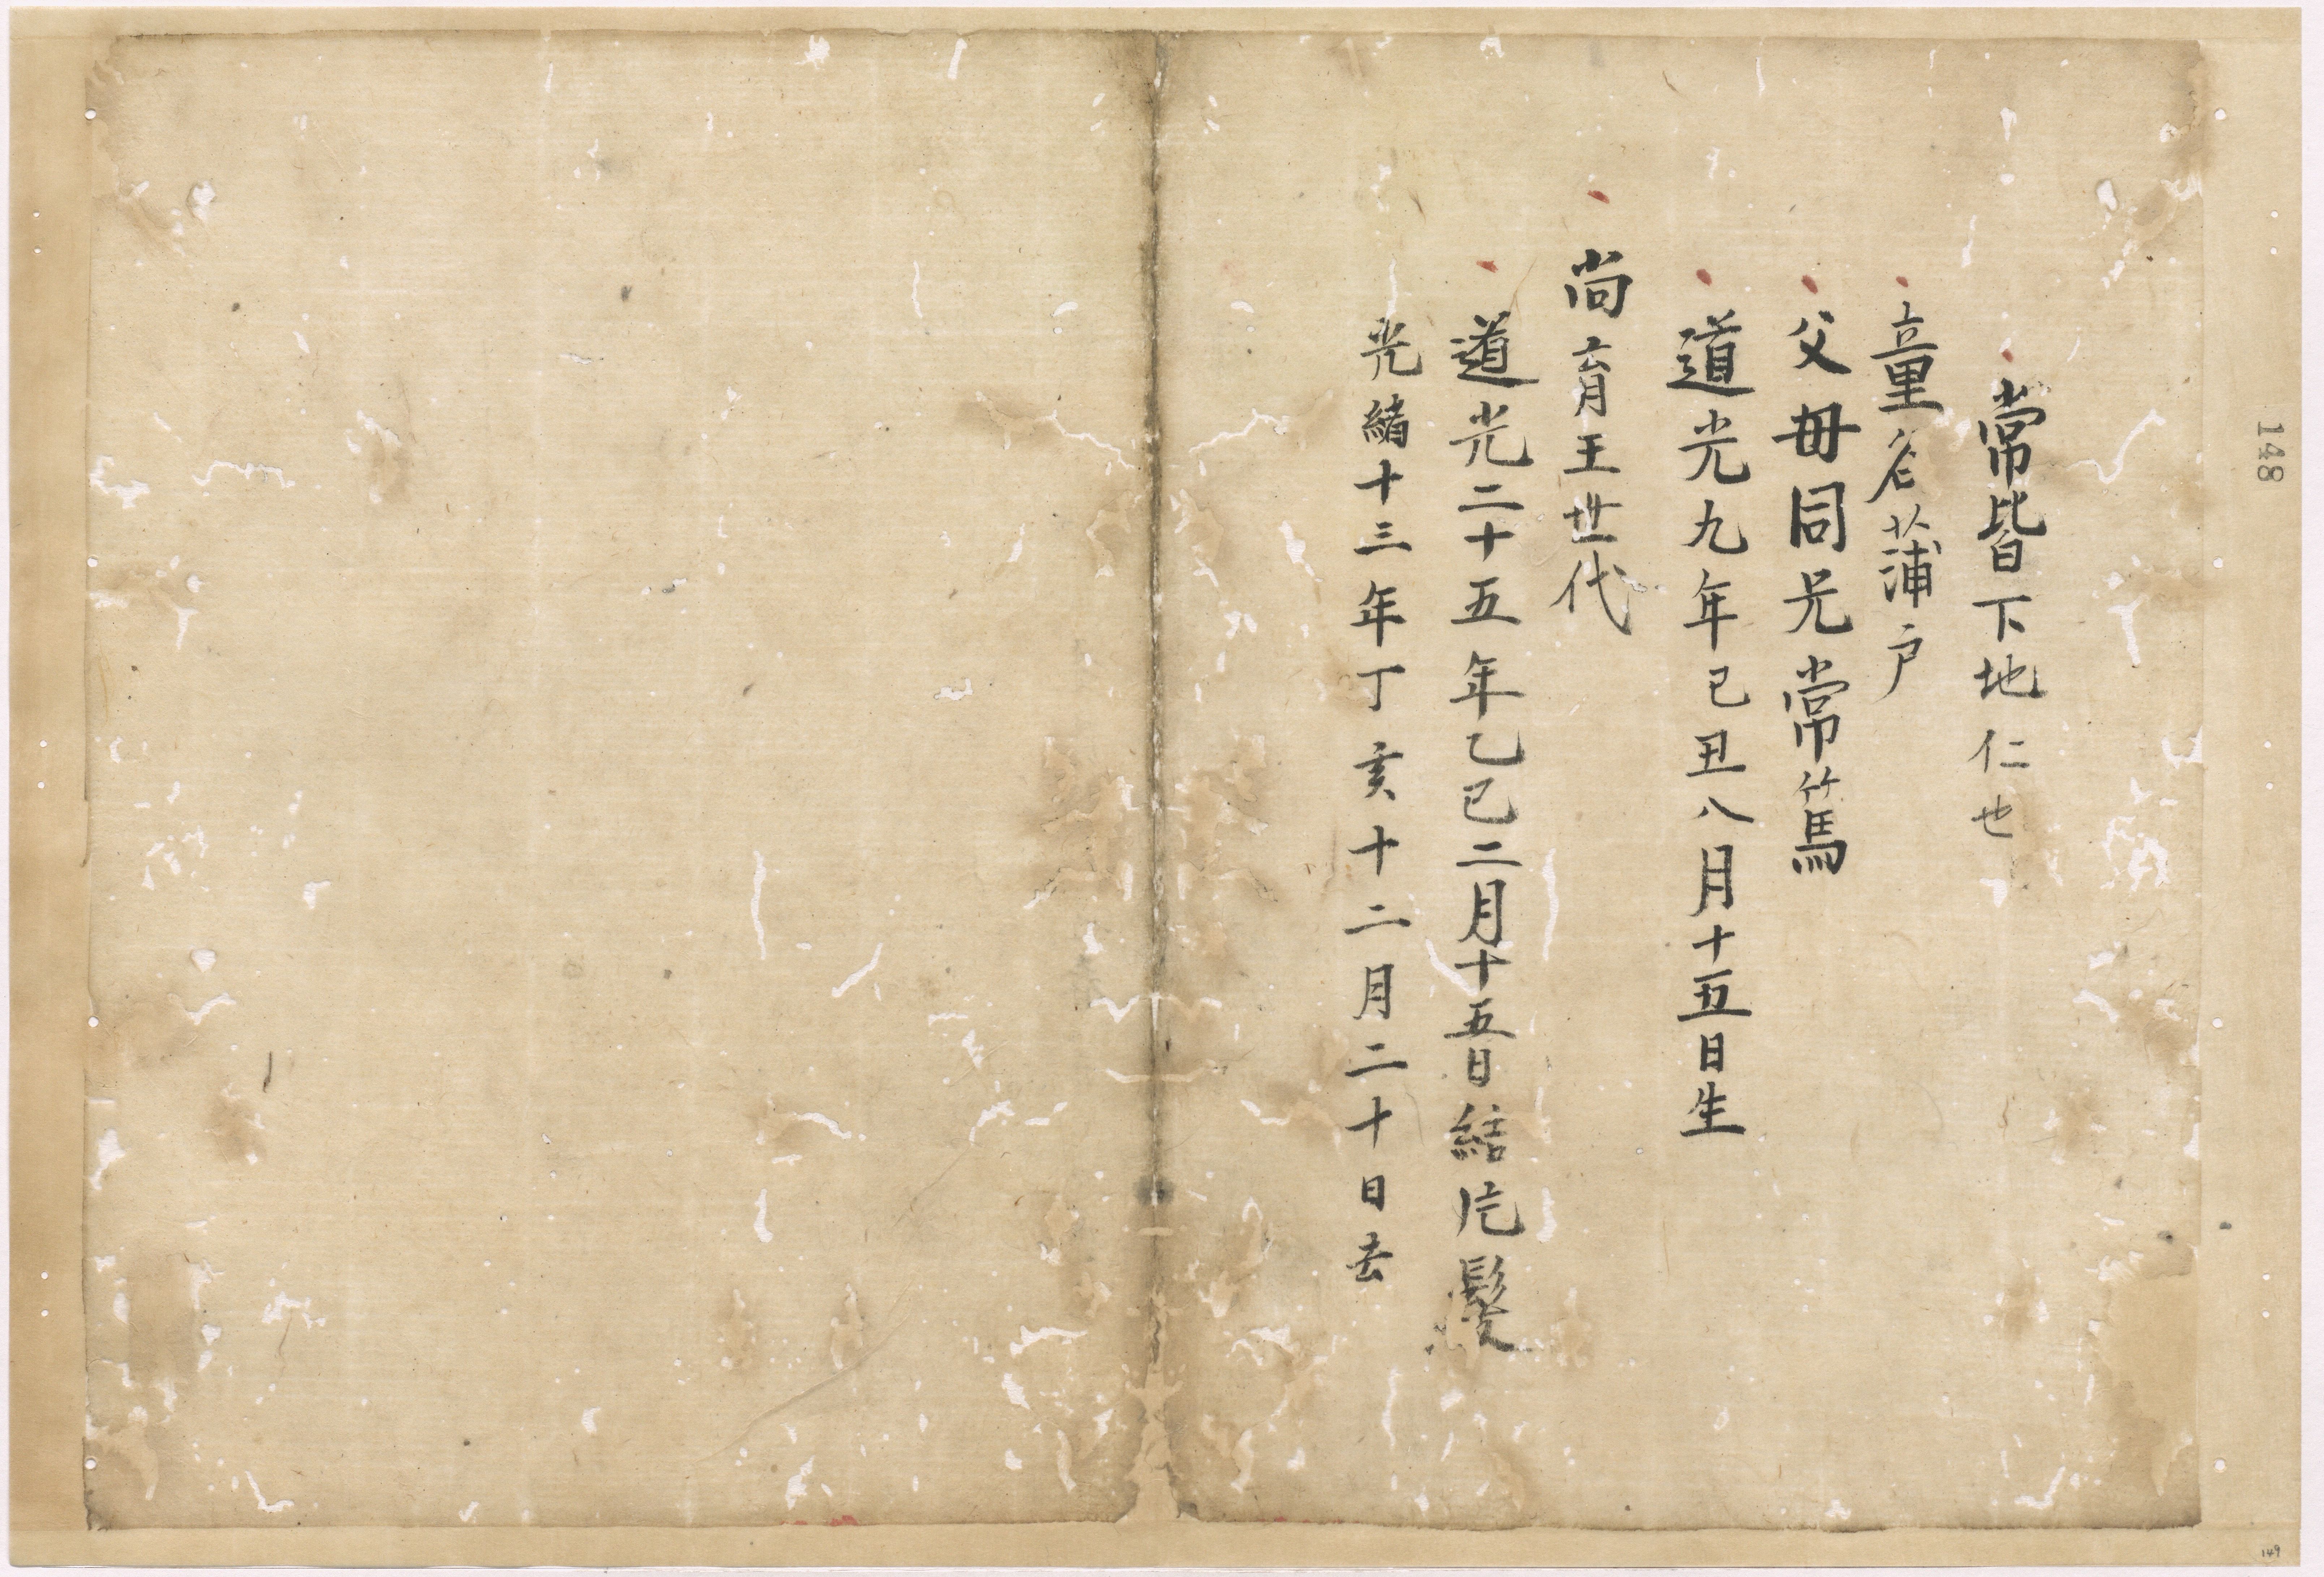 常皆下地仁也
童名蒲戸
父母同兄常篤
道光九年己丑八月十五日生
尚育王世代
道光二十五年乙巳二月十五日結片髪
光緒十三年丁亥十二月二十日去
148
149